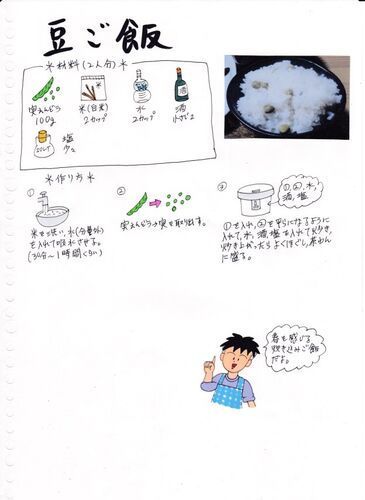 豆ご飯
*材料(2人分)*
実えんどう
100g
米(白米)
2カップ
水
2カップ
酒
小さじ2
SALT
塩
少々
*作り方*
①
米を洗い、水(分量外)
を入れて吸水させる。
(30分~1時間くらい)
②
実えんどうの実を取り出す。
③
①,②,水,
酒,塩
①を入れ,②を平らになるように
入れて,水,酒,塩を入れて炊き,
炊き上がったらよくほぐし,茶わん
に盛る。
春を感じる
炊き込みご飯
だよ。